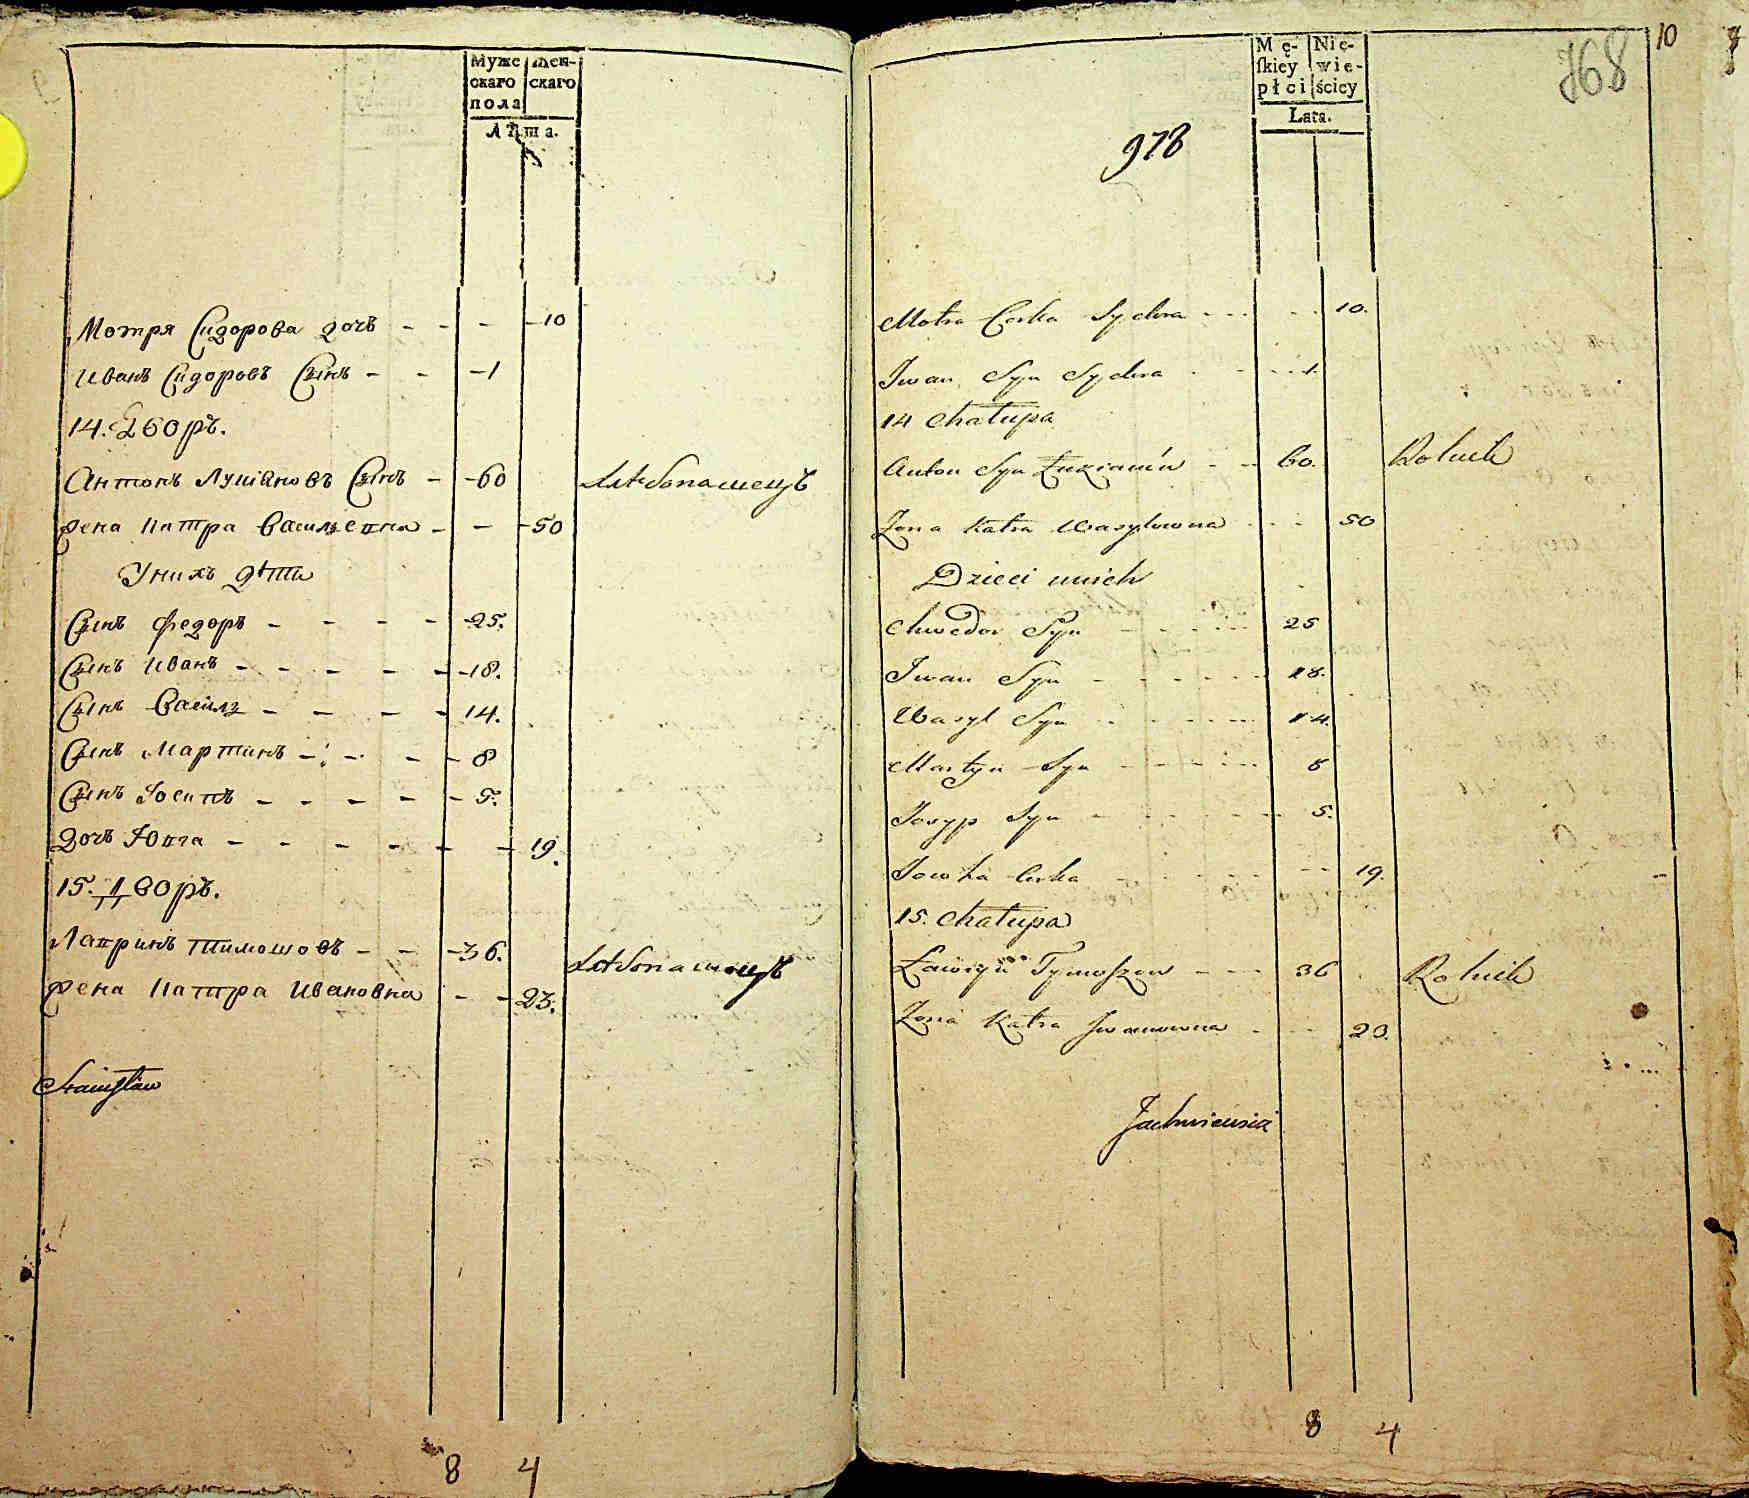 Муже
скаго
пола
Жен-
скаго
Лѣта.
Мотря Сидорова дочь - - - - 10
Иванъ Сидоровъ Сынъ - - - 1
14. Дворъ.
Антонъ Луціановъ Сынъ - - 60 Хлебопашецъ
Жена Катра Васильевна - - - 50
У нихъ дѣти
Сынъ Федоръ - - - - 25.
Сынъ Иванъ - - - - - - 18.
Сынъ Василь - - - - 14.
Сынъ Мартинъ - - - - 8
Сынъ Іосипъ - - - - - 5.
Дочь Ювга - - - - - - 19.
15. Дворъ.
Лавринъ Тимошовъ - - - 36. Хлебопашецъ
Жена Катра Ивановна - - 23.
Stanisław
8 4
10
768
Mę-
ſkiey
płci
Nie-
wie-
ściey
Lata.
978
Motra Corka Sydora - - - - - 10.
Iwan Syn Sydora - - - - 1.
14 Chałupa
Anton Syn Łuzianów - - 60. Rolnik
Żona Katra Wasylowna - - - 50
Dzieci u nich
Chwedor Syn - - - - - 25
Iwan Syn - - - - - - 18.
Wasyl Syn - - - - - 14.
Martyn Syn - - - - - 8
Josyp Syn - - - - - 5.
Jowha Corka - - - - - - 19.
15. Chałupa
Ławryn Tymoszow - - - 36 Rolnik
Żona Katra Iwanowna - - - 23.
Jachnicwicz
8 4